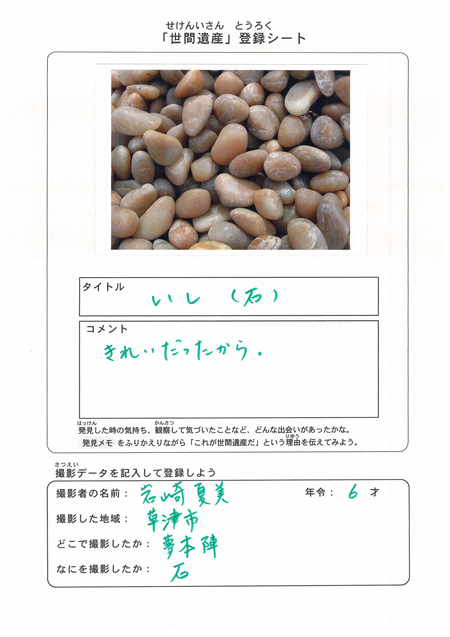 せけんいさん とうろく
「世間遺産」登録シート
タイトル
いし（石）
コメント
きれいだったから。
はっけん かんさつ
発見した時の気持ち、観察して気づいたことなど、どんな出会いがあったかな。
りゆう
発見メモ をふりかえりながら「これが世間遺産だ」という理由を伝えてみよう。
さつえい
撮影データを記入して登録しよう
撮影者の名前： 岩崎夏美 年令： 6 才
撮影した地域： 草津市
どこで撮影したか： 夢本陣
なにを撮影したか： 石